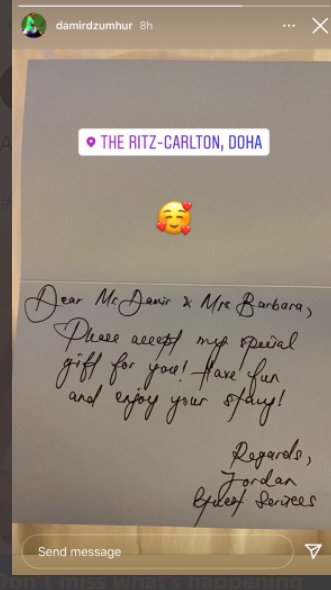 damirdzumhur 8h
THE RITZ-CARLTON, DOHA
Dear Mr. Damir & Mrs Barbara,
Please accept my special
gift for you! Have fun
and enjoy your stay!
Regards,
Jordan
Guest Services
Send message
Don't miss what's happening